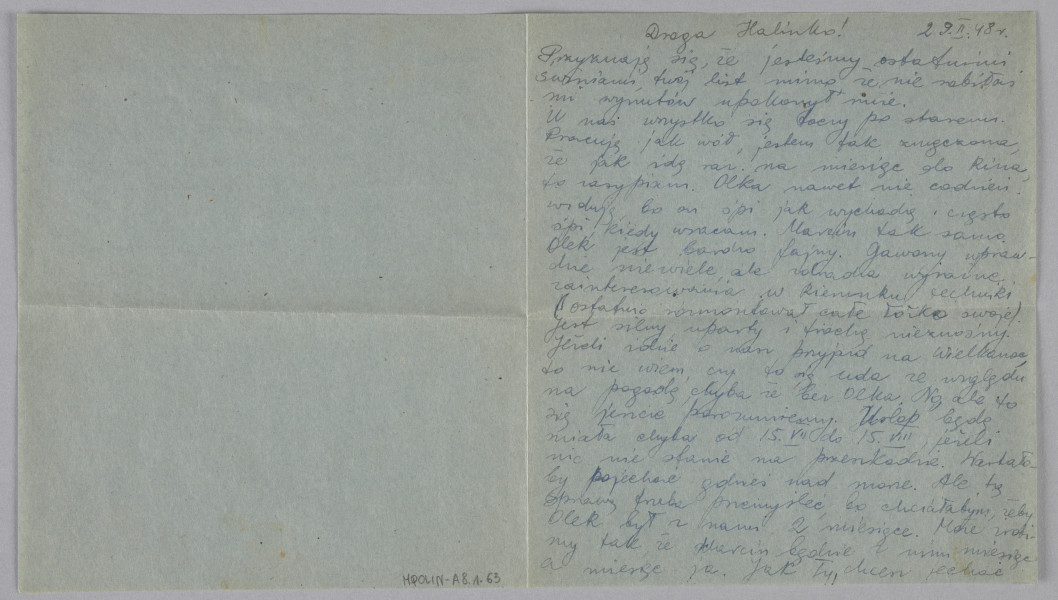 Droga Halinko! 29.II.48r.
Przyznaję się, że jesteśmy ostatnimi
świniami, twój list mimo że nie robiłaś
mi wymówek upokorzył mnie.
U nas wszystko się toczy po staremu.
Pracuję jak wół, jestem tak zmęczona,
że jak idę raz na miesiąc do kina,
to zasypiam. Olka nawet nie codzień
widuję bo on śpi jak wychodzę i często
śpi, kiedy wracam. Marcin tak samo.
Olek jest bardzo fajny. Gaworzy wpraw-
dzie niewiele ale zdradza wyraźne
zainteresowania w kierunku techniki
(ostatnio rozmontował całe łóżko swoje).
Jest silny uparty i trochę nieznośny.
Jeżeli idzie o nasz przyjazd na Wielkanoc
to nie wiem, czy to się uda ze względu
na pogodę, chyba że bez Olka. No ale to
się jeszcze porozumiemy. Urlop będę
miała chyba od 15.VII do 15.VIII jeżeli
nic nie stanie na przeszkodzie. Wartało-
by pojechać gdzieś nad morze. Ale tę
sprawę trzeba przemyśleć bo chciałabym, żeby
Olek był z nami 2 miesiące. Może zrobi-
my tak, że Marcin będzie z nim miesiąc
a miesiąc ja. Jak Ty, chcesz jechać
HPOLIN-A8.1.63